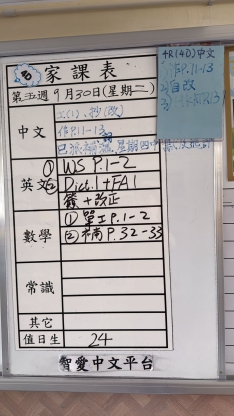 家課表
4R(4D)中文
作P.11-13
2)自改
第五週9月30日(星期二)
中文
工(1)、抄(改)
作P.11-13
英文
① WS P.1-2
② Dict.1+FA1
簽+改正
數學
① 單工P.1-2
② 補P.32-33
常識
其它
值日生
24
智愛中文平台